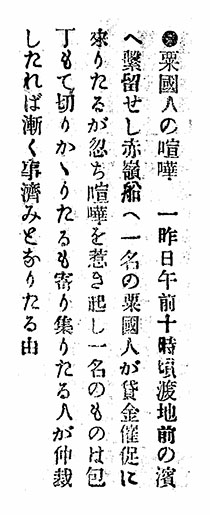 ◉粟國人の喧嘩 一昨日午前十時頃渡地前の濱
へ繫留せし赤嶺船へ一名の粟國人が貸金催促に
來りたるが忽ち喧嘩を惹き起し一名のものは包
丁もて切りかゝりたるも寄り集りたる人が仲裁
したれば漸く事濟みとなりたる由